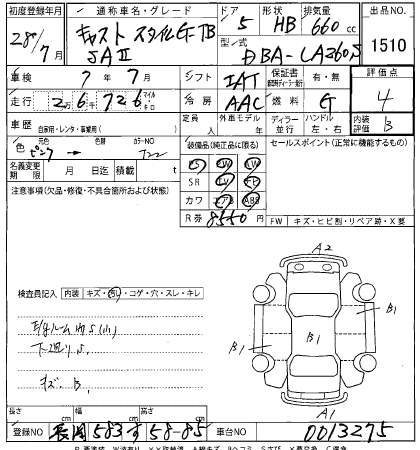 初度登録年月 通称車名・グレード ドア 形状 排気量 出品NO
28年 7月 キャスト スタイルG-TB SAⅡ 5 HB 660cc 1510
型式 DBA-LA260S
車検 7年7月 シフト IAT 保証書 有・無 評価点
走行 2万6千726 マイルキロ 冷房 AAC 燃料 G 4
車歴 自家用・レンタ・事業用( ) 定員 人 外車モデル ディラー 並行 ハンドル 左・右 内装 B
色 元色 色替 カラーNO 装備品(純正品に限る) セールスポイント(正常に機能するもの)
ピンク → T22 PS AW PW
名義変更期限 月 日迄 積載 t SR TV ナビ
注意事項(欠品・修復・不具合箇所および状態) カワ エアB ABS
R券 8550円 FW キズ・ヒビ割・リペア跡・X
A2
検査員記入 内装 キズ・汚れ・コゲ・穴・スレ・キレ
E/gルーム内S(小)
下廻りS
キズ B
B1 B1 B1
A1
長さ cm 幅 cm 高さ cm
登録NO 長岡 583 す 58-85 車台NO 0013275